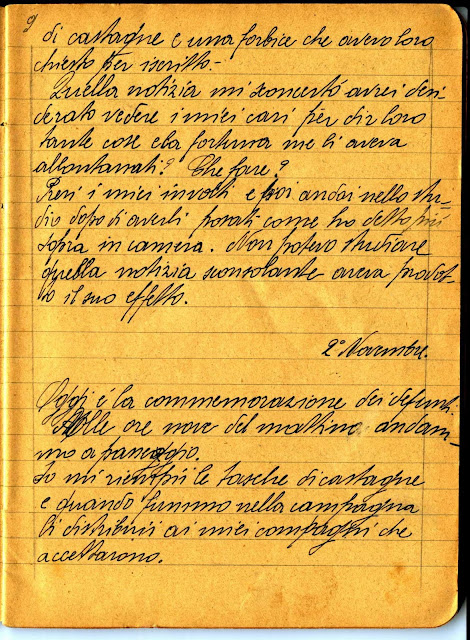 9
di castagne e una forbice che avevo loro
chiesto per iscritto.-
Quella notizia mi sconcertó avrei desi
derato vedere i miei cari per dir loro
tante cose e la fortuna me li aveva
allontanati? Che fare?
Presi i miei involti e poi andai nello stu-
dio dopo di averli posati come ho detto più
sopra in camera. Non potevo studiare
quella notizia sconsolante aveva prodot-
to il suo effetto.
2° Novembre.
Oggi é la commemorazione dei defunti.
Alle ore nove del mattino andam-
mo a passeggio.
Io mi riempii le tasche di castagne
e quando fummo nella campagna
li distribuii ai miei compagni che
accettarono.